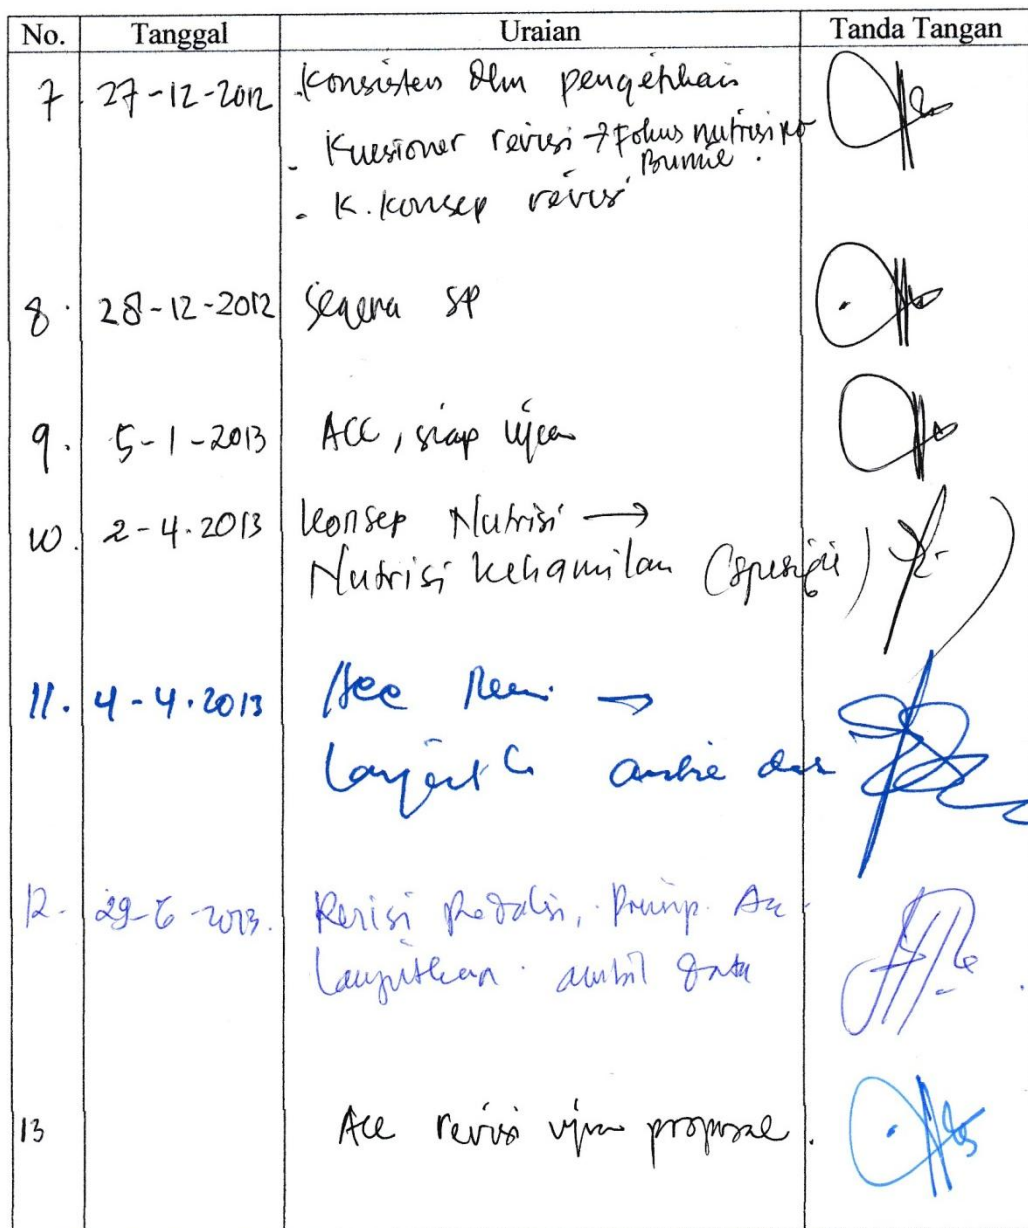 No. Tanggal Uraian Tanda Tangan
7. 27-12-2012 . Konsisten dlm pengetikan
- Kuesioner revisi → Fokus nutrisi
Bumil.
- K. konsep revisi
8. 28-12-2012 Segera SP
9. 5-1-2013 ACC, siap ujian
10. 2-4.2013 konsep Nutrisi →
Nutrisi kehamilan (spesifik)
11. 4-4.2013 Acc →
Lanjut ambil
12. 29-6-2013. Revisi Redaksi, Prinsip Acc
Lanjutkan ambil data
13 Acc revisi ujian proposal.